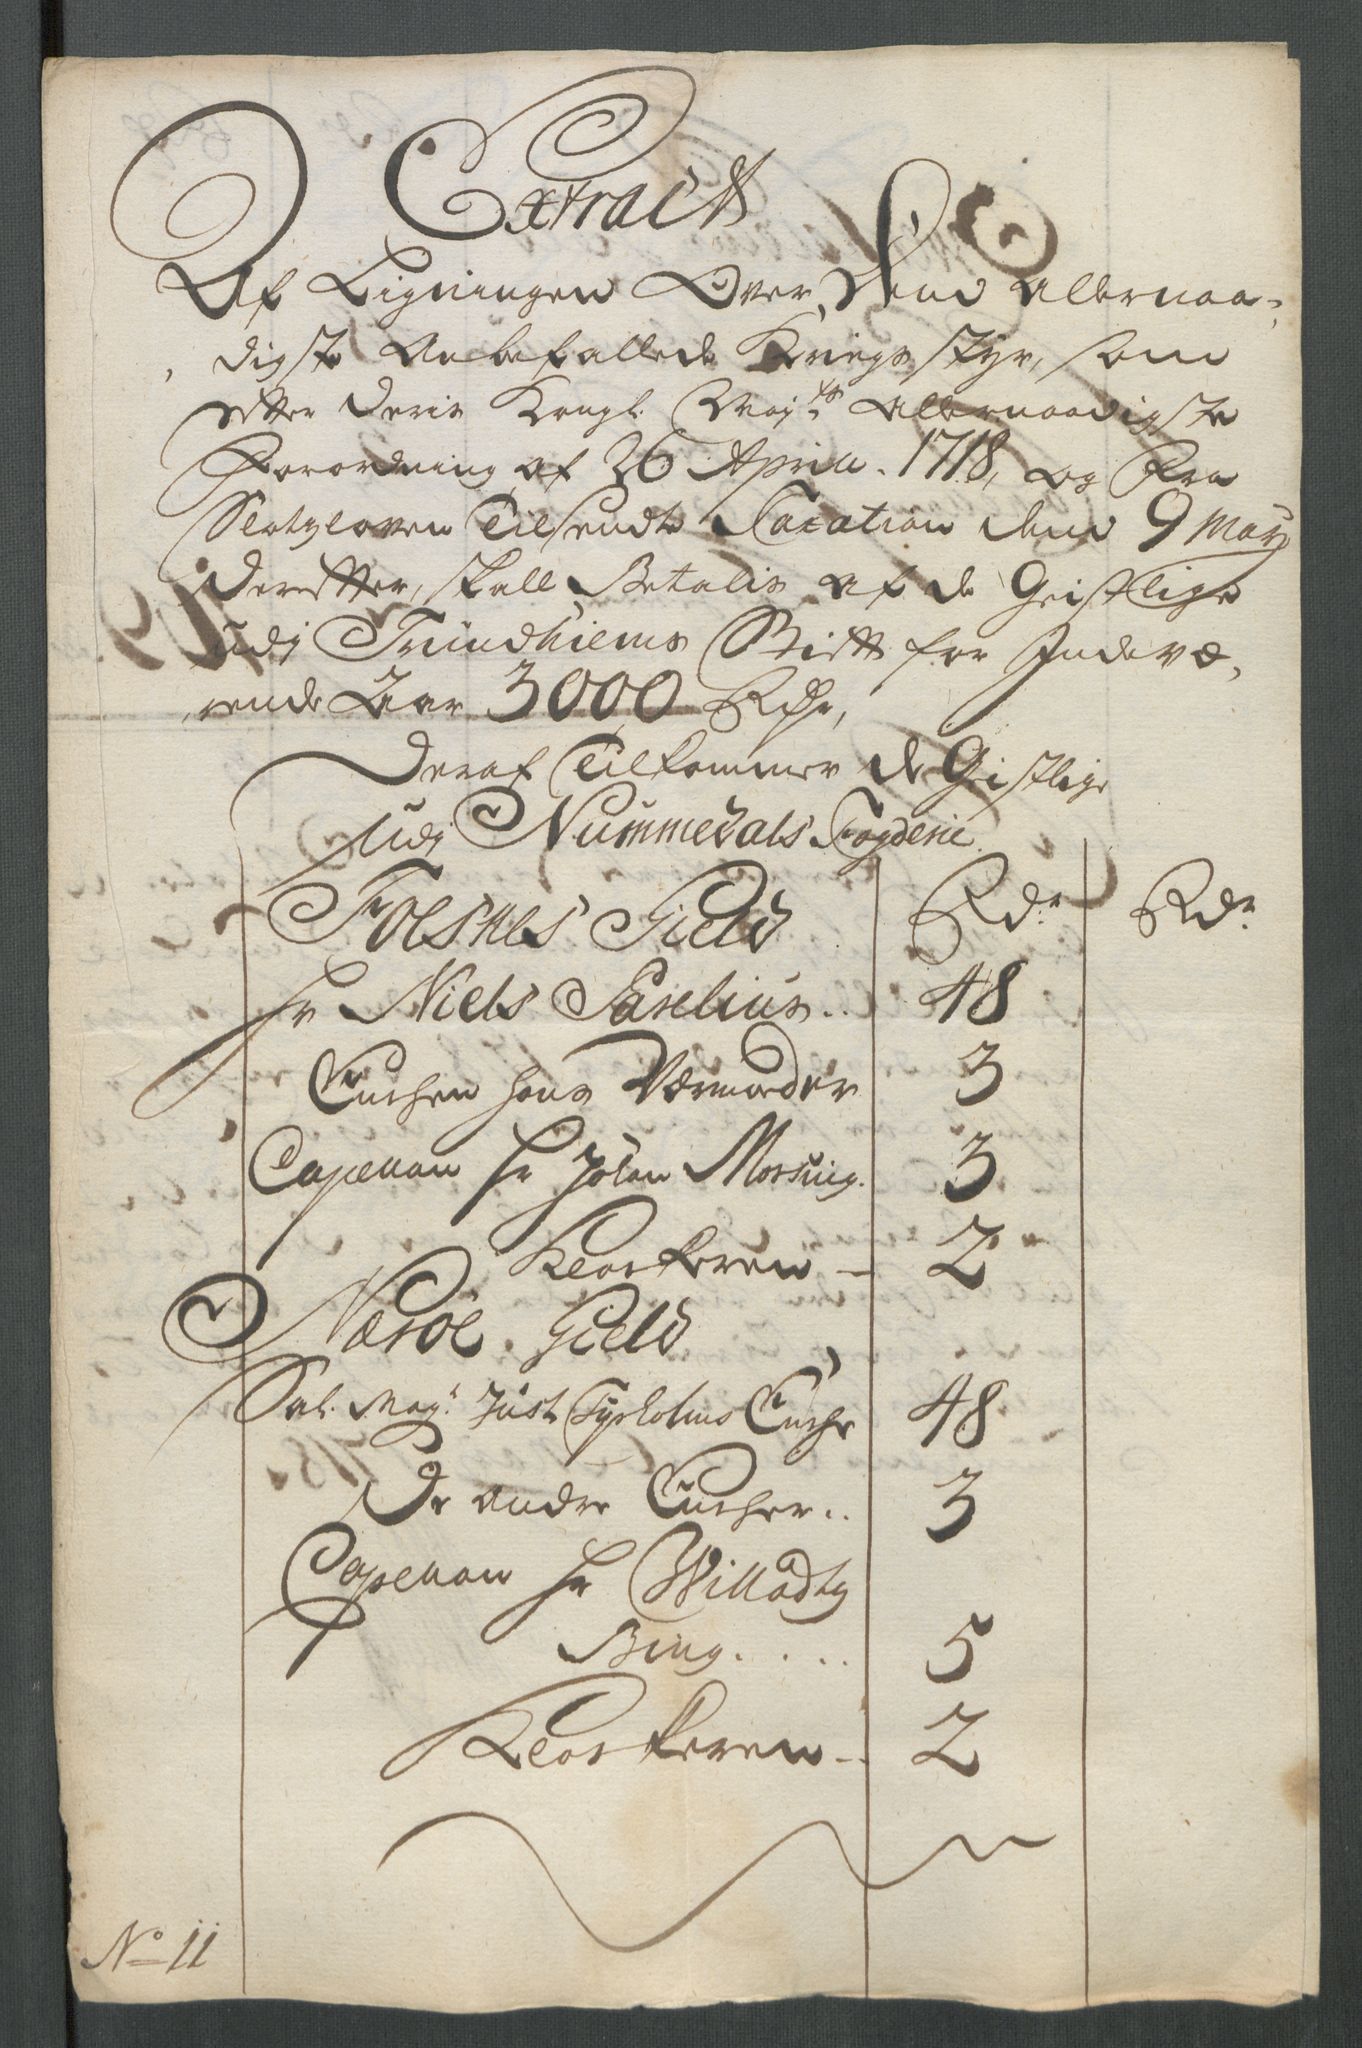 Extract
Af Ligningen Over Dend Allernaa-
digste Anbefallede Kriigs Styr, som
efter Deris Kongl. Maj:ts Allernaadigste
Forordning af 26 Aprill. 1718, og fra
Slotzloven Tilsendte Taxation dend 9 Maij
derefter, skall Betalis af de Geistlige
udj Trundhiems Stift for Indevæ-
rende Aar 3000 Rdr,
Deraf Tilkommer de Geistlige
udj Nummedals Fogderie
Foesnes Gield Rdr Rdr
Hr Niels Parelius .. 48
Enchen hans Værmoder 3
Capellan Hr Johan Morsing. 3
Klockeren 2
Nærøe Gield
Sal. Mag: Just Tyrholms Enche 48
De andre Encher .. 3
Capellan Hr Willadtz
Bing .... 5
Klockeren 2
No 11